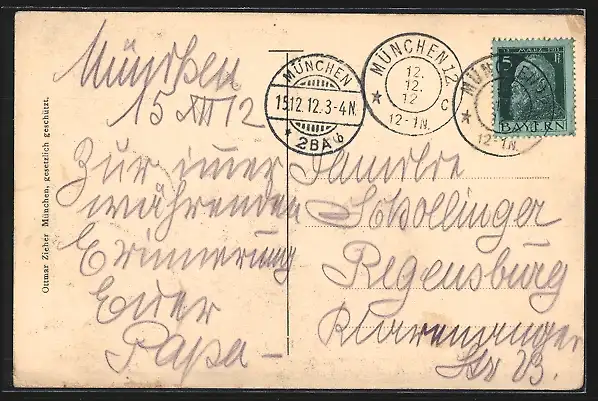 München
15 XII 12
Zur imer
währenden
Erinnerung
Euer
Papa -
Ottmar Zieher München, gesetzlich geschützt.
MÜNCHEN
15.12.12.3-4N.
* 2BA b
MÜNCHEN 12.
12.
12.
12
* C
12-1N.
MÜNCHEN
12-1N.
5
BAYERN
Familie
Schollinger
Regensburg
Str 13.